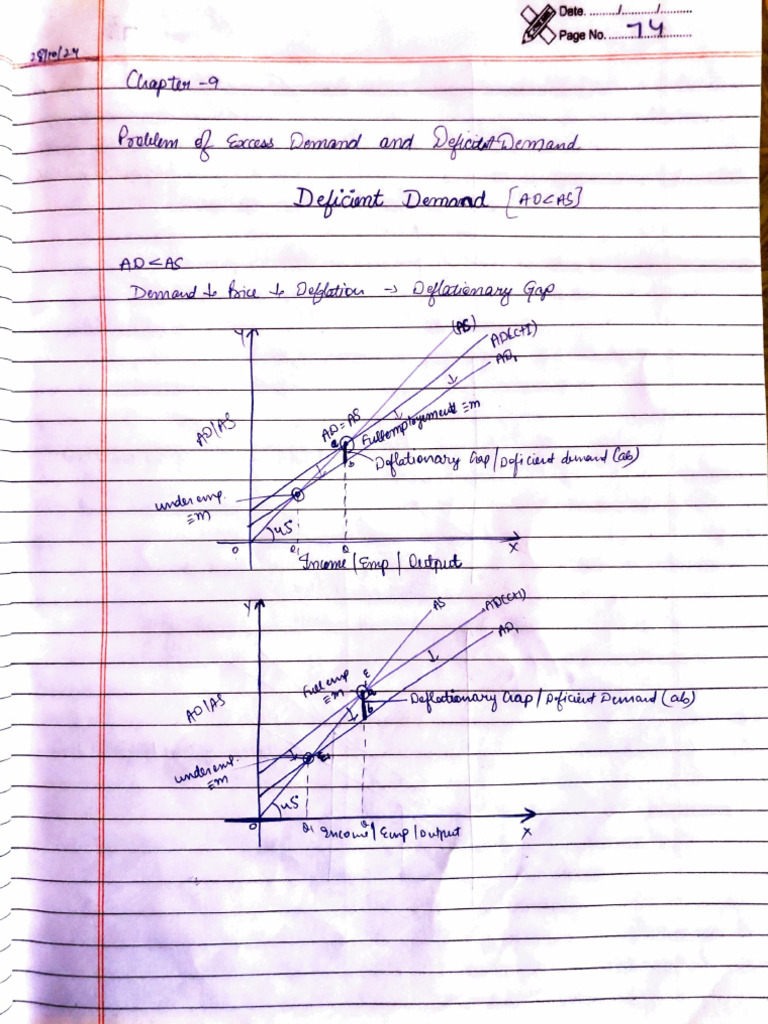 Date. ......../......../.........
Page No. 74
28/10/24
Chapter -9
Problem of Excess Demand and Deficient Demand
Deficient Demand [AD<AS]
AD<AS
Demand ↓ Price ↓ Deflation → Deflationary Gap
Y
(AS)
AD(C+I)
AD₁
AD/AS
AD=AS
Fullemployement ≡m
a
b
Deflationary Gap/Deficient demand (ab)
under emp.
≡m
45
O
Q₁
Q
X
Income/Emp/Output
Y
AS
AD(C+I)
AD₁
AD/AS
Full emp
≡m
E
a
b
Deflationary Gap/Deficient Demand (ab)
under emp.
≡m
E₁
45
O
Q₁
Q
X
Income/Emp/Output